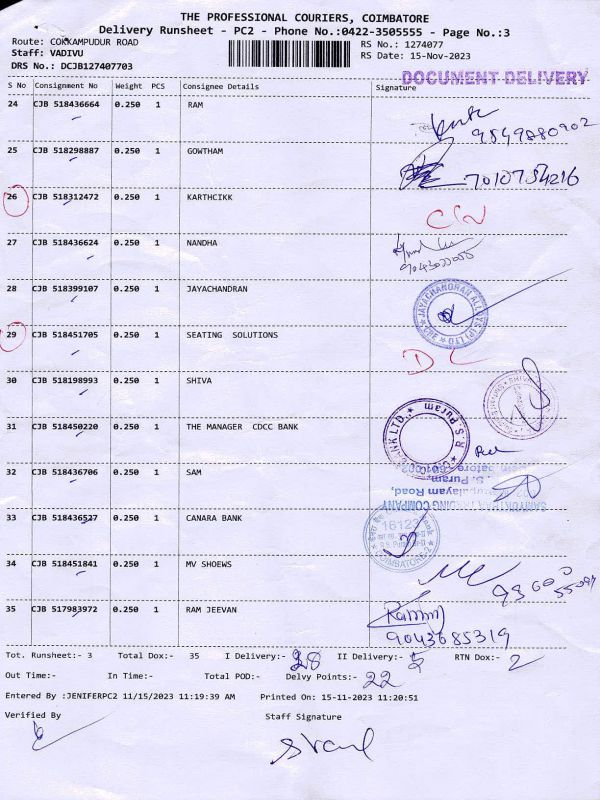 THE PROFESSIONAL COURIERS, COIMBATORE
Delivery Runsheet - PC2 - Phone No.:0422-3505555 - Page No.:3
Route: COKKAMPUDUR ROAD
RS No.: 1274077
Staff: VADIVU
RS Date: 15-Nov-2023
DRS No.: DCJB127407703
DOCUMENT DELIVERY
S No Consignment No Weight PCS Consignee Details Signature
24 CJB 518436664 0.250 1 RAM
9549880902
25 CJB 518298887 0.250 1 GOWTHAM
7010754216
26 CJB 518312472 0.250 1 KARTHCIKK
27 CJB 518436624 0.250 1 NANDHA
28 CJB 518399107 0.250 1 JAYACHANDRAN
JAYACHANDRAN ALLOYS (P) LTD
CBE
29 CJB 518451705 0.250 1 SEATING SOLUTIONS
DL
30 CJB 518198993 0.250 1 SHIVA
31 CJB 518450220 0.250 1 THE MANAGER CDCC BANK
R.S. Puram
32 CJB 518436706 0.250 1 SAM
33 CJB 518436527 0.250 1 CANARA BANK
16123
COIMBATORE-2
34 CJB 518451841 0.250 1 MV SHOEWS
35 CJB 517983972 0.250 1 RAM JEEVAN
9043685319
Tot. Runsheet:- 3 Total Dox:- 35 I Delivery:- 28 II Delivery:- 5 RTN Dox:- 2
Out Time:- In Time:- Total POD:- Delvy Points:- 22
Entered By :JENIFERPC2 11/15/2023 11:19:39 AM Printed On: 15-11-2023 11:20:51
Verified By Staff Signature